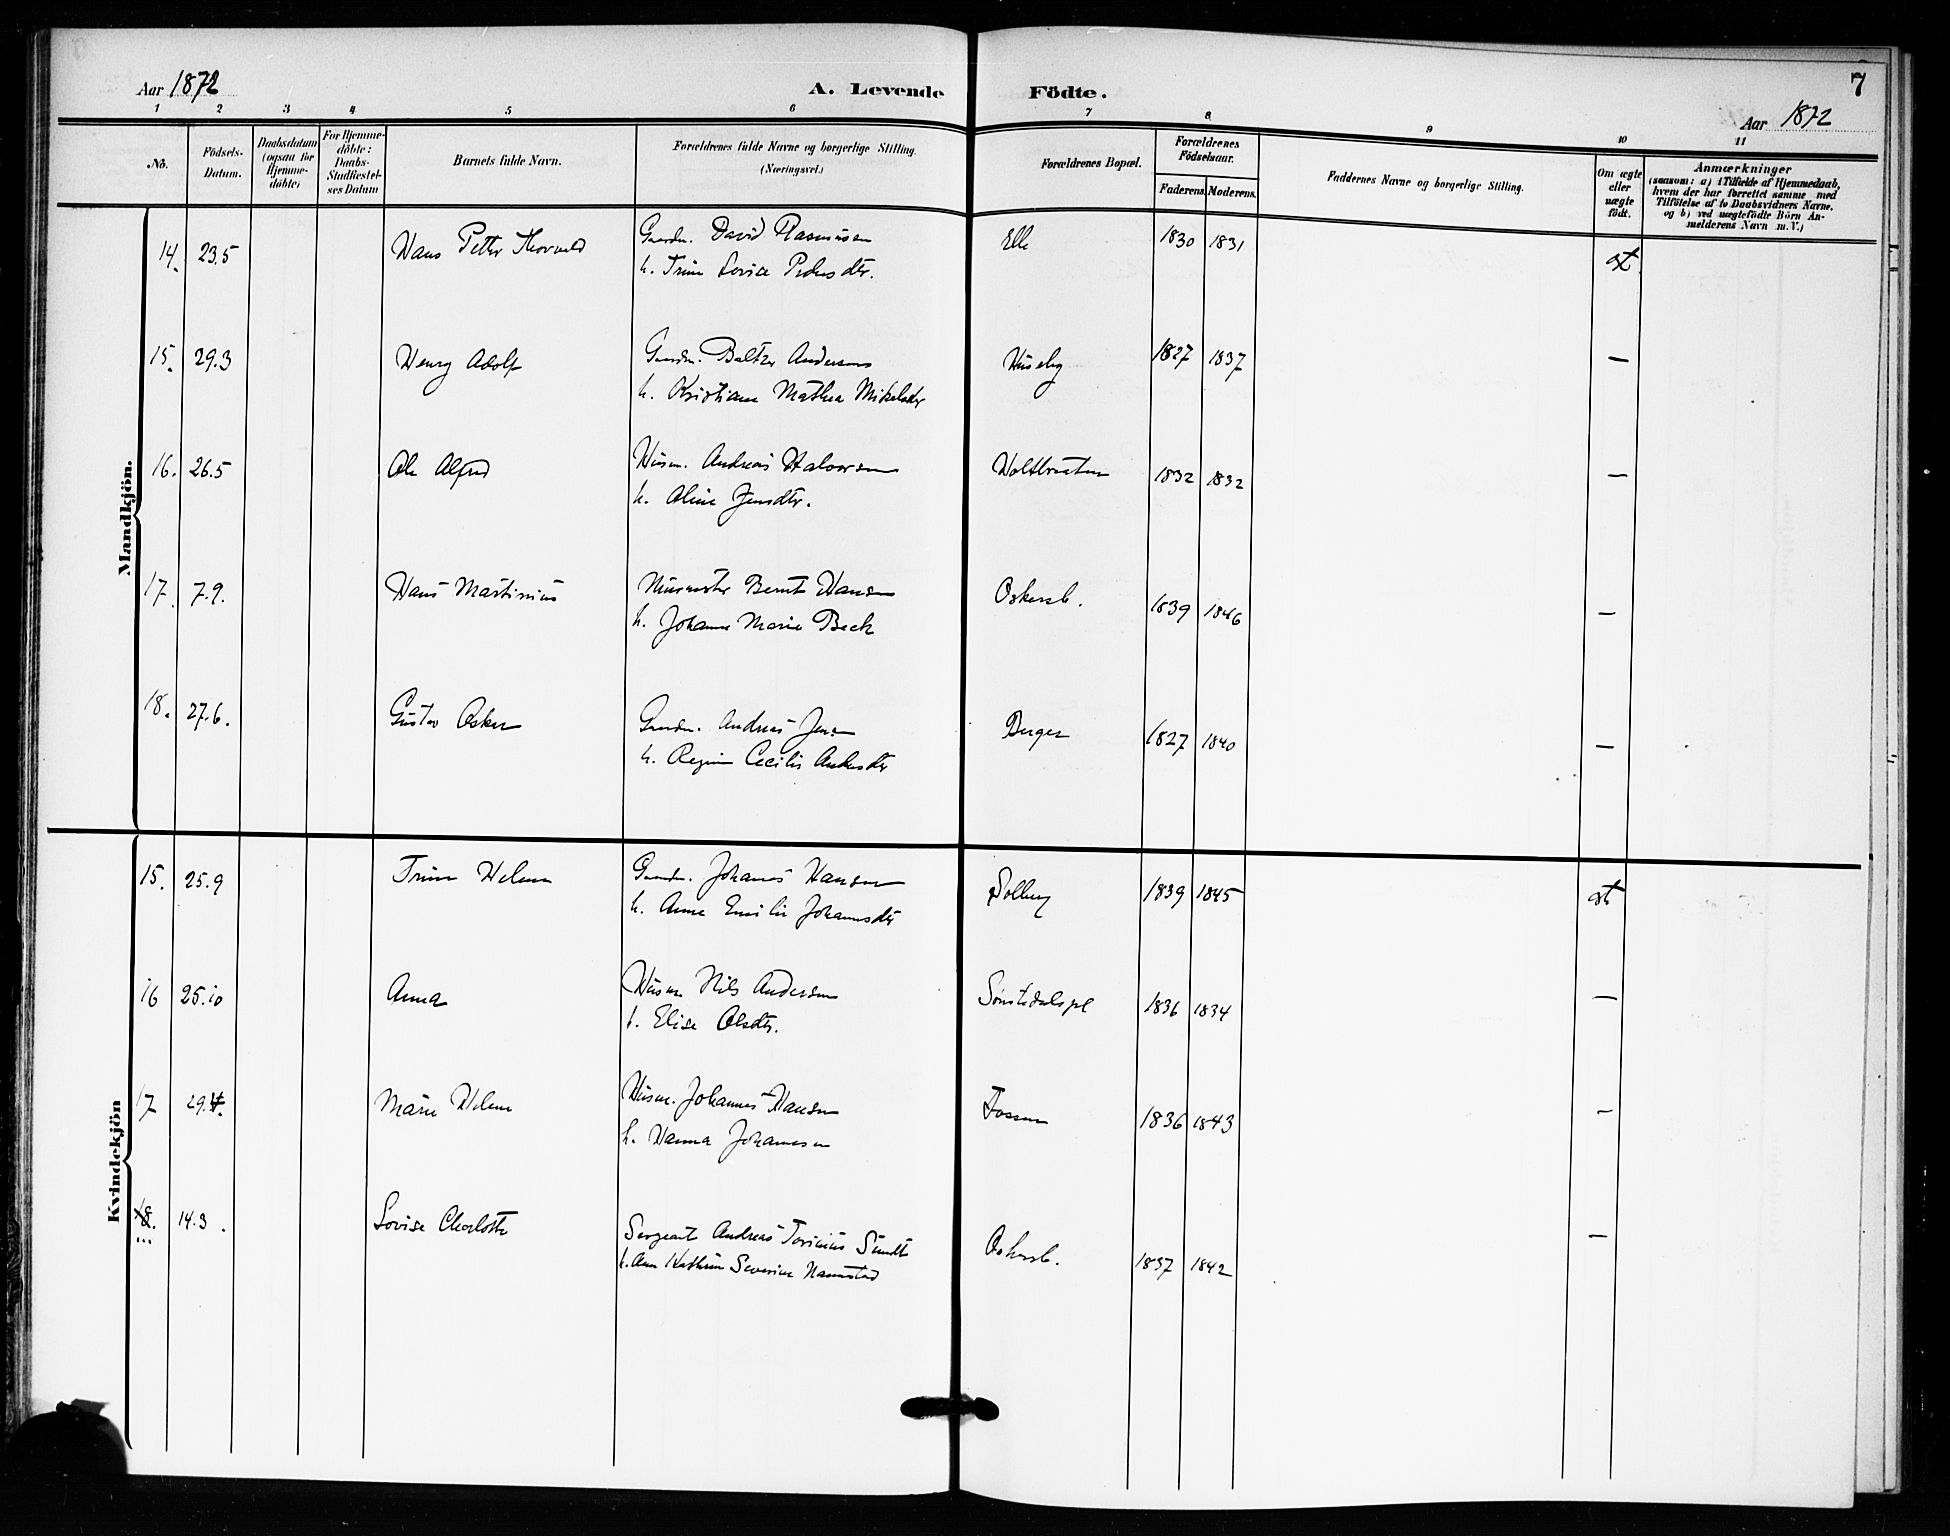 Aar 1872
A. Levende Födte.
7
Aar 1872
1 2 3 4 5 6 7 8 9 10 11
No.
Födsels-Datum.
Daabsdatum (ogsaa för Hjemme-döbte)
For Hjemme-döbte: Daabs-Stadfestel-ses Datum
Barnets fulde Navn.
Forældrenes fulde Navne og borgerlige Stilling. (Næringsvei.)
Forældrenes Bopæl.
Forældrenes Födselsaar.
Faderens. Moderens.
Faddernes Navne og borgerlige Stilling.
Om ægte eller uægte födt.
Anmærkninger
(saasom: a) i Tilfælde af Hjemmedaab, hvem der har forrettet samme med Tilföielse af to Daabsvidners Navne. og b) ved uægtefödte Börn An-melderens Navn m. V.)
Mandkjön.
14. 23.5 Hans Petter Thorvald Gaardm. David Rasmussen Elle 1830 1831 gt.
h. Trine Lovise Pedersdtr.
15. 29.3 Henry Adolf Gaardm. Baltzer Andersen Huseby 1827 1837 —
h. Kristiane Mathea Mikelsdtr
16. 26.5 Ole Alfred Husm. Andreas Halvorsen Holtbraaten 1832 1832 —
h. Oline Jensdtr.
17. 7.9. Hans Martinius Murmester Bernt Hansen Oskarsb. 1839 1846 —
h. Johanne Marie Beck
18. 27.6. Gustav Oskar Gaardm. Andreas Jensen Berger 1827 1840 —
h. Regine Cecilie Andersdtr
Kvindekjön
15. 25.9 Trine Helene Gaardm. Johannes Hansen Solberg 1839 1845 gt
h. Anne Emilie Johannesdtr
16 25.10 Anna Husm Nils Andersen Sønstedalspl 1836 1834 —
h. Elise Olsdtr.
17 29.4. Marie Helene Husm. Johannes Hansen Fossum 1836 1843 —
h. Hanna Johannesen
18. 14.3. Lovise Charlotte Sergeant Andreas Sundt Oskarsb. 1837 1842 —
h. Ane Kathrine Severine